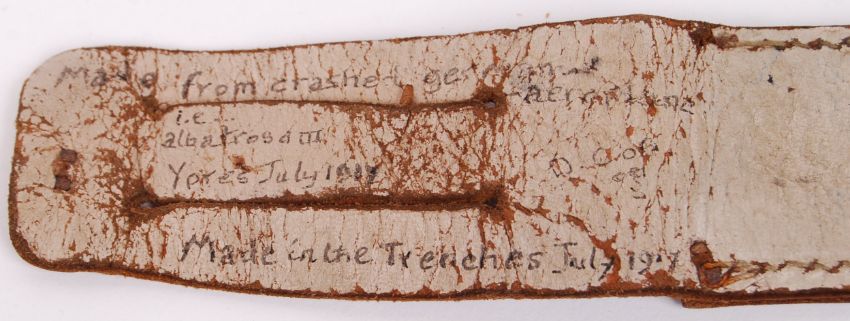 Made from crashed german
aeroplane
i.e.
albatros d III
Ypres July 1917
D Coy
Made in the Trenches July 1917